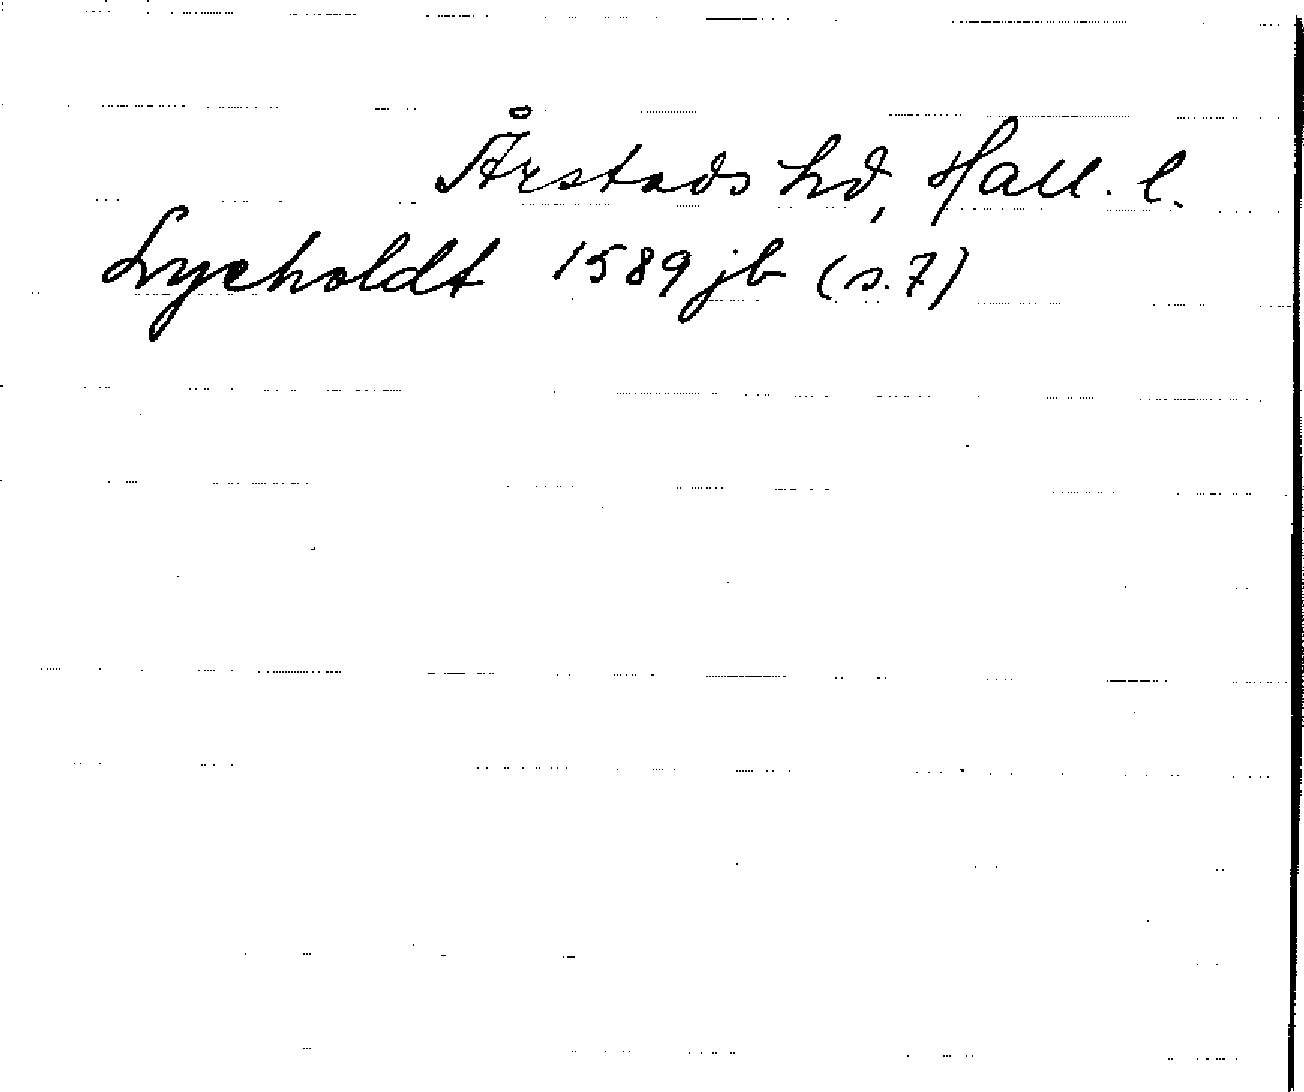 Årstads hd, Hall. l.
Lyeholdt 1589 jb (s. 7)